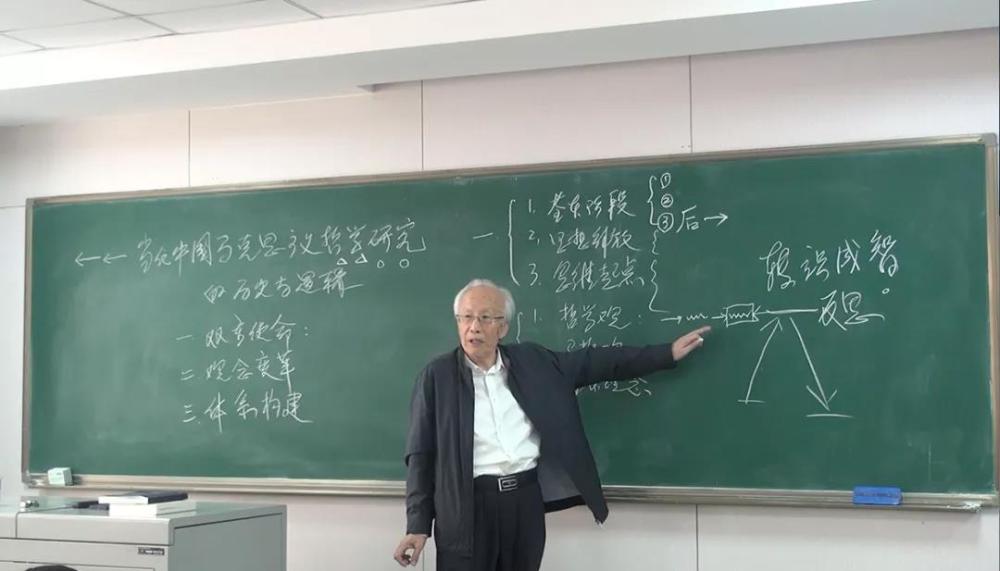 ←← 当代中国马克思主义哲学研究
的历史与逻辑
一 双重使命：
二 观念变革
三. 体系构建
一 1. 基本阶段 ① ② ③ 后→
2. 思想解放
3. 思维起点
1. 哲学观：→ → 反思
念
转识成智。